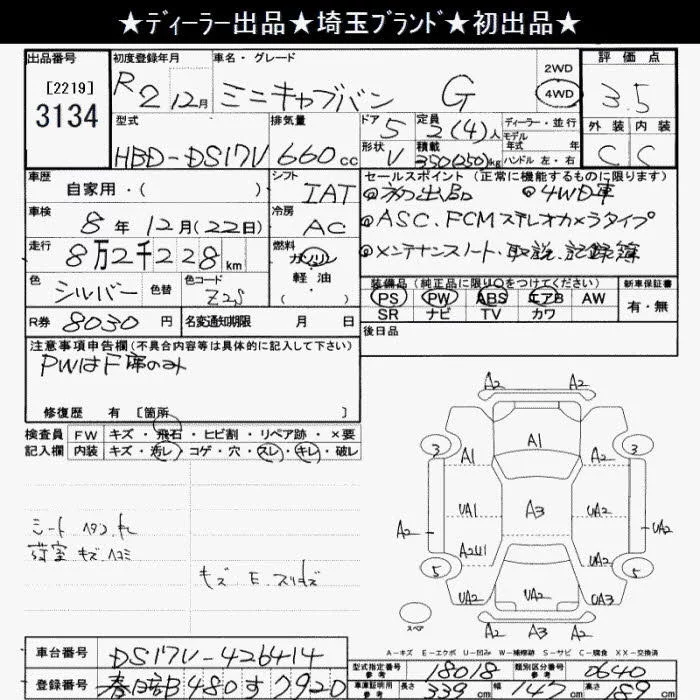 ★ディーラー出品★埼玉ブランド★初出品★
出品番号 初度登録年月 車名・グレード 評価点
[2219] R2年12月 ミニキャブバン G 2WD 4WD 3.5
3134
型式 排気量 ドア 5 定員 2(4)人 ディーラー・並行 外装 内装
モデル年式 年式
HBD-DS17V 660cc 形状 V 積載 350(250)kg ハンドル 左・右 C C
車歴 シフト セールスポイント(正常に機能するものに限ります)
自家用・( ) IAT ◎初出品 ◎4WD車
車検 冷房
8年12月(22日) AC ◎ASC、FCMステレオカメラタイプ
走行 燃料
8万2千228km ガソリン ◎メンテナンスノート・取説、記録簿
軽油・( )
色 色替 色コード 装備品(純正品に限り○をつけてください) 新車保証書
シルバー Z2S PS PW ABS エアB AW 有・無
SR ナビ TV カワ
R券 8030円 名変通知期限 月 日 後日品
注意事項申告欄(不具合内容等は具体的に記入して下さい)
PWはF席のみ
修復歴 有[箇所 ]
検査員 FW キズ・飛石・ヒビ割・リペア跡・×要
記入欄 内装 キズ・汚レ・コゲ・穴・スレ・キレ・破レ
A2 A2
3 A1 3
A1 A2
UA1 A3 UA2
A2 UA2
A2U1
5 5
UA2 UA2 UA2 UA3
スペア A2 A3 A2
シート
荷室 キズ、ヘコミ
キズ E. スリキズ
A-キズ E-エクボ U-凹み W-補修跡 S-サビ C-腐食 XX-交換済
車台番号 DS17V-426414 型式指定番号 参考 18018 類別区分番号 参考 0640
登録番号 春日部 480 す 7920 車庫証明用 参考 長さ 339cm 幅 147cm 高さ 189cm